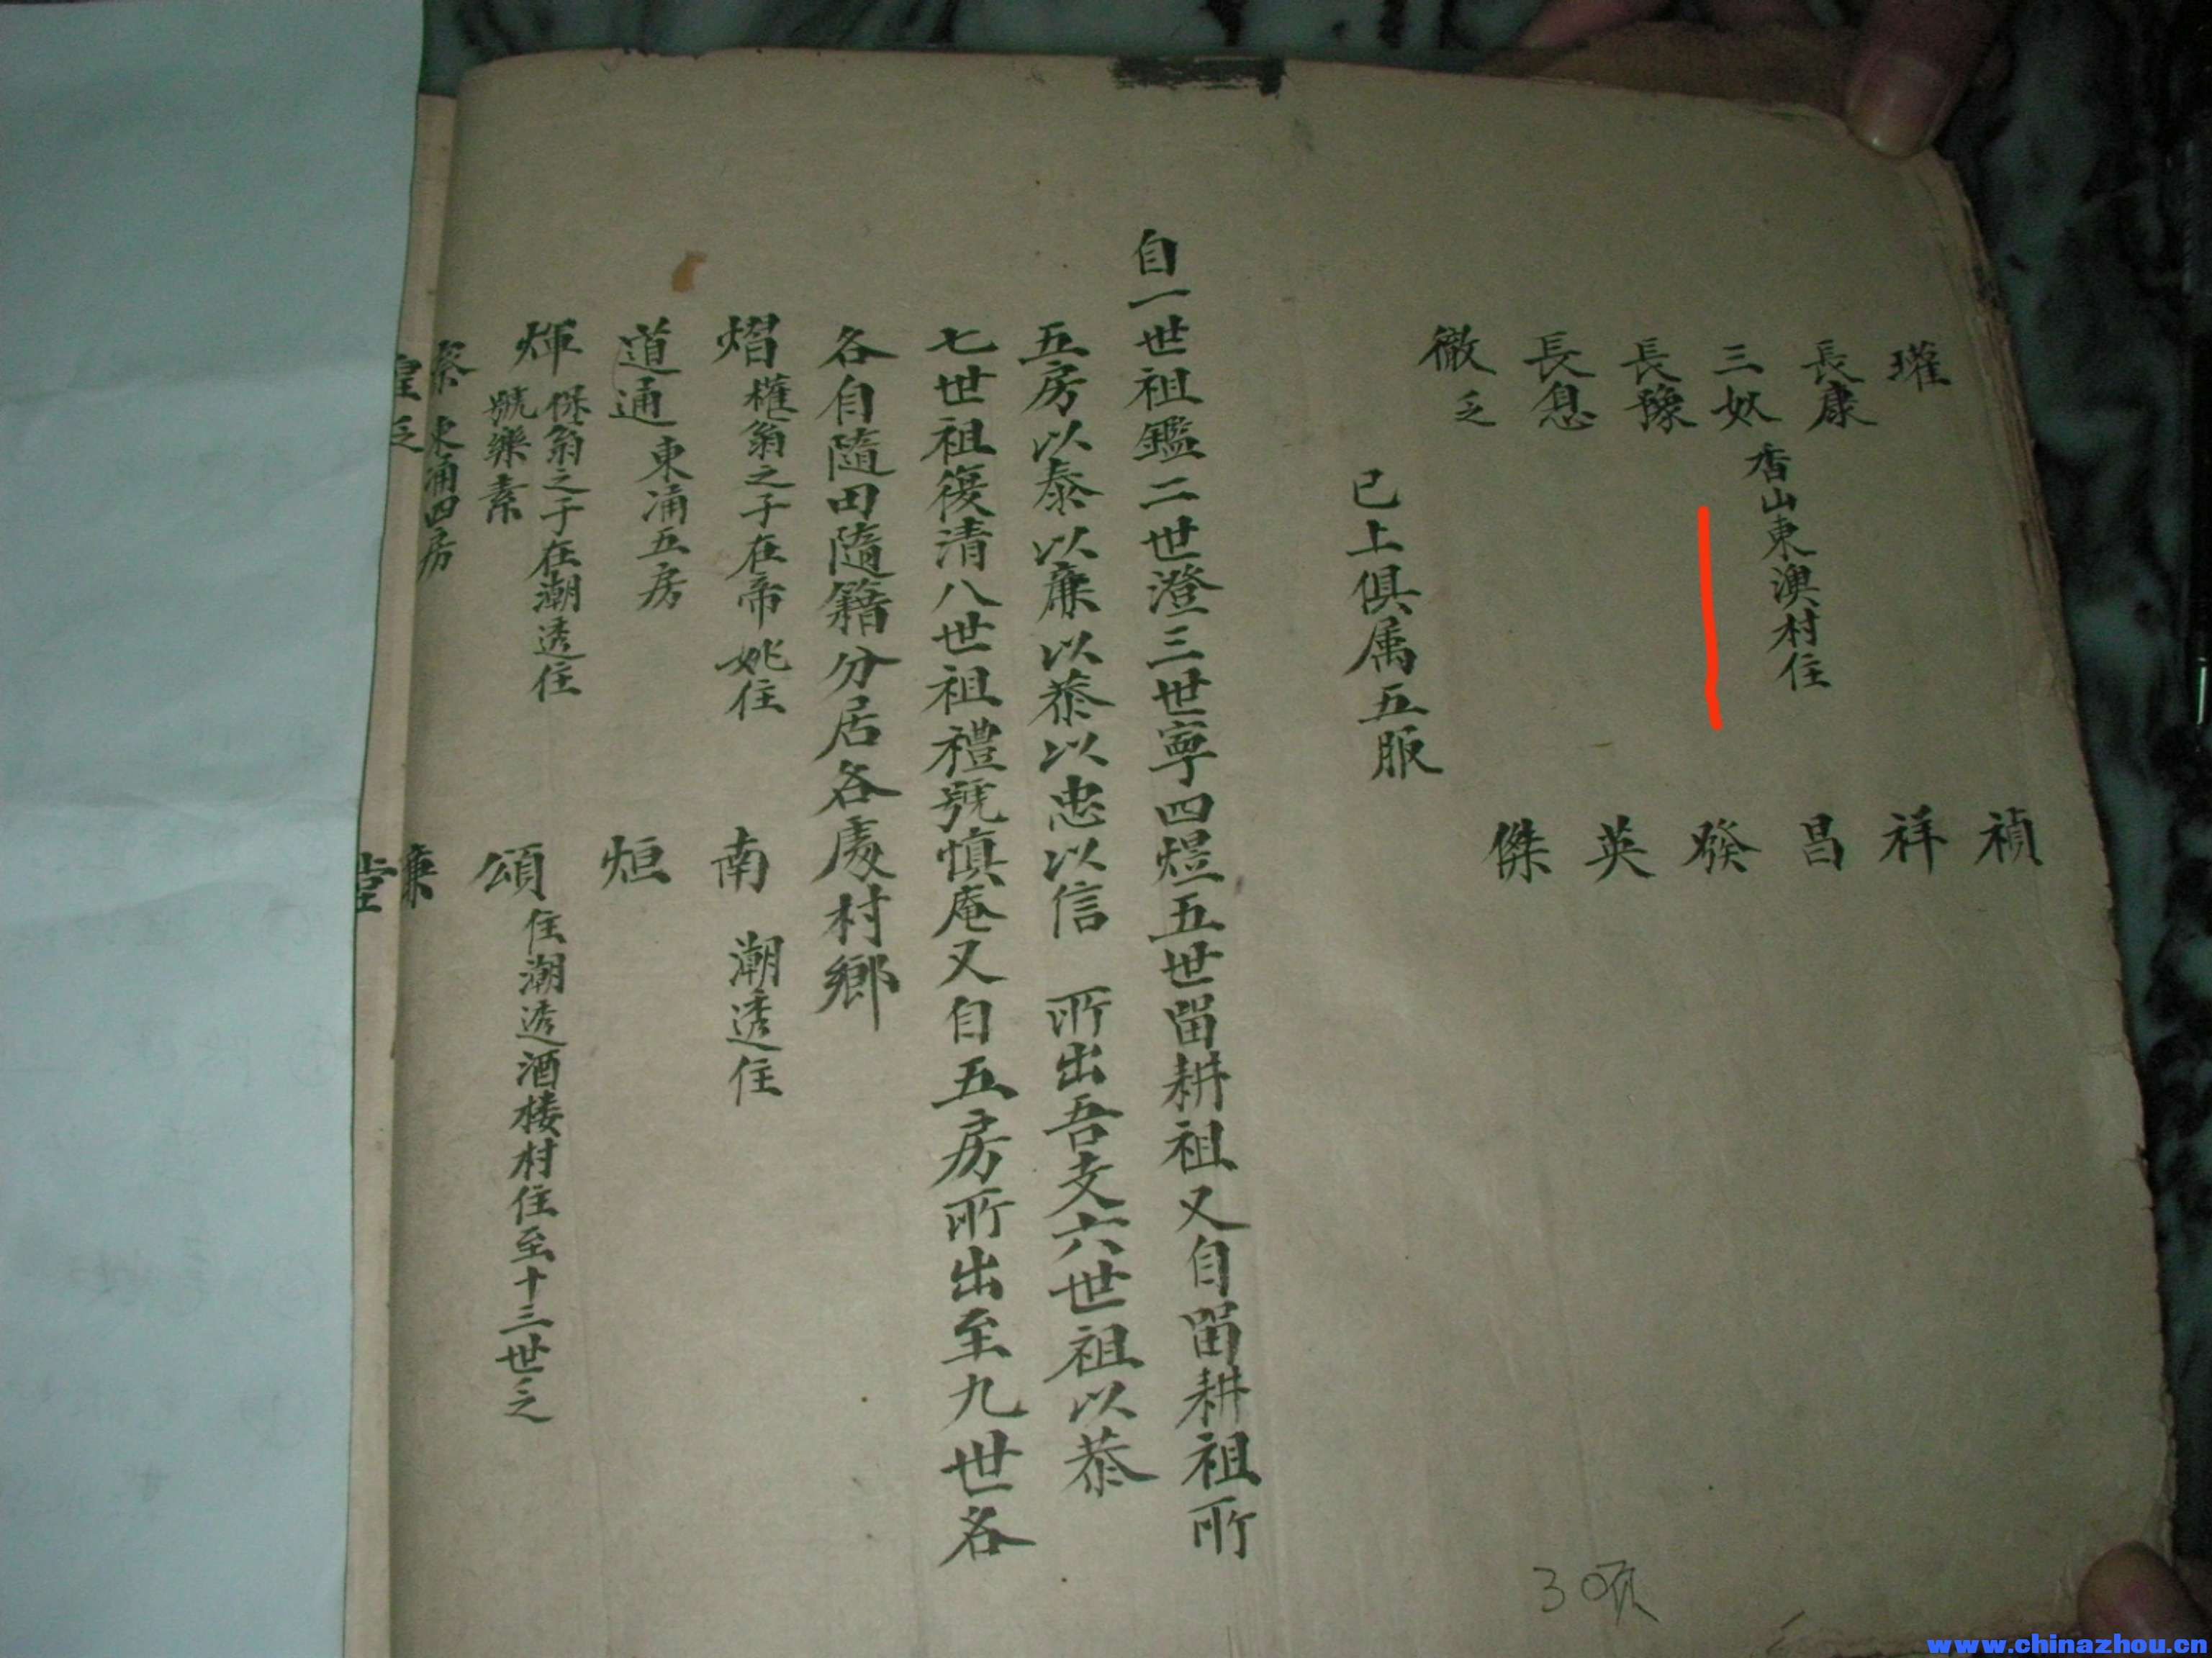 瓘
長康
三奴 香山東澳村住
長豫
長息
徹乏
禎
祥
昌
發
英
傑
已上俱属五服
自一世祖鑑二世澄三世寧四煜五世畱耕祖又自畱耕祖所
五房以泰以廉以恭以忠以信 所出吾支六世祖以恭
七世祖復清八世祖禮號慎庵又自五房所出至九世各
各自隨田隨籍分居各處村鄉
熠 權翁之子在帝姚住
南 潮透住
道通 東涌五房
烜
煇 傑翁之子在潮透住
號樂素
頌 住潮透酒楼村住至十三世乏
東涌四房
廉
乏
30頁
www.chinazhou.cn